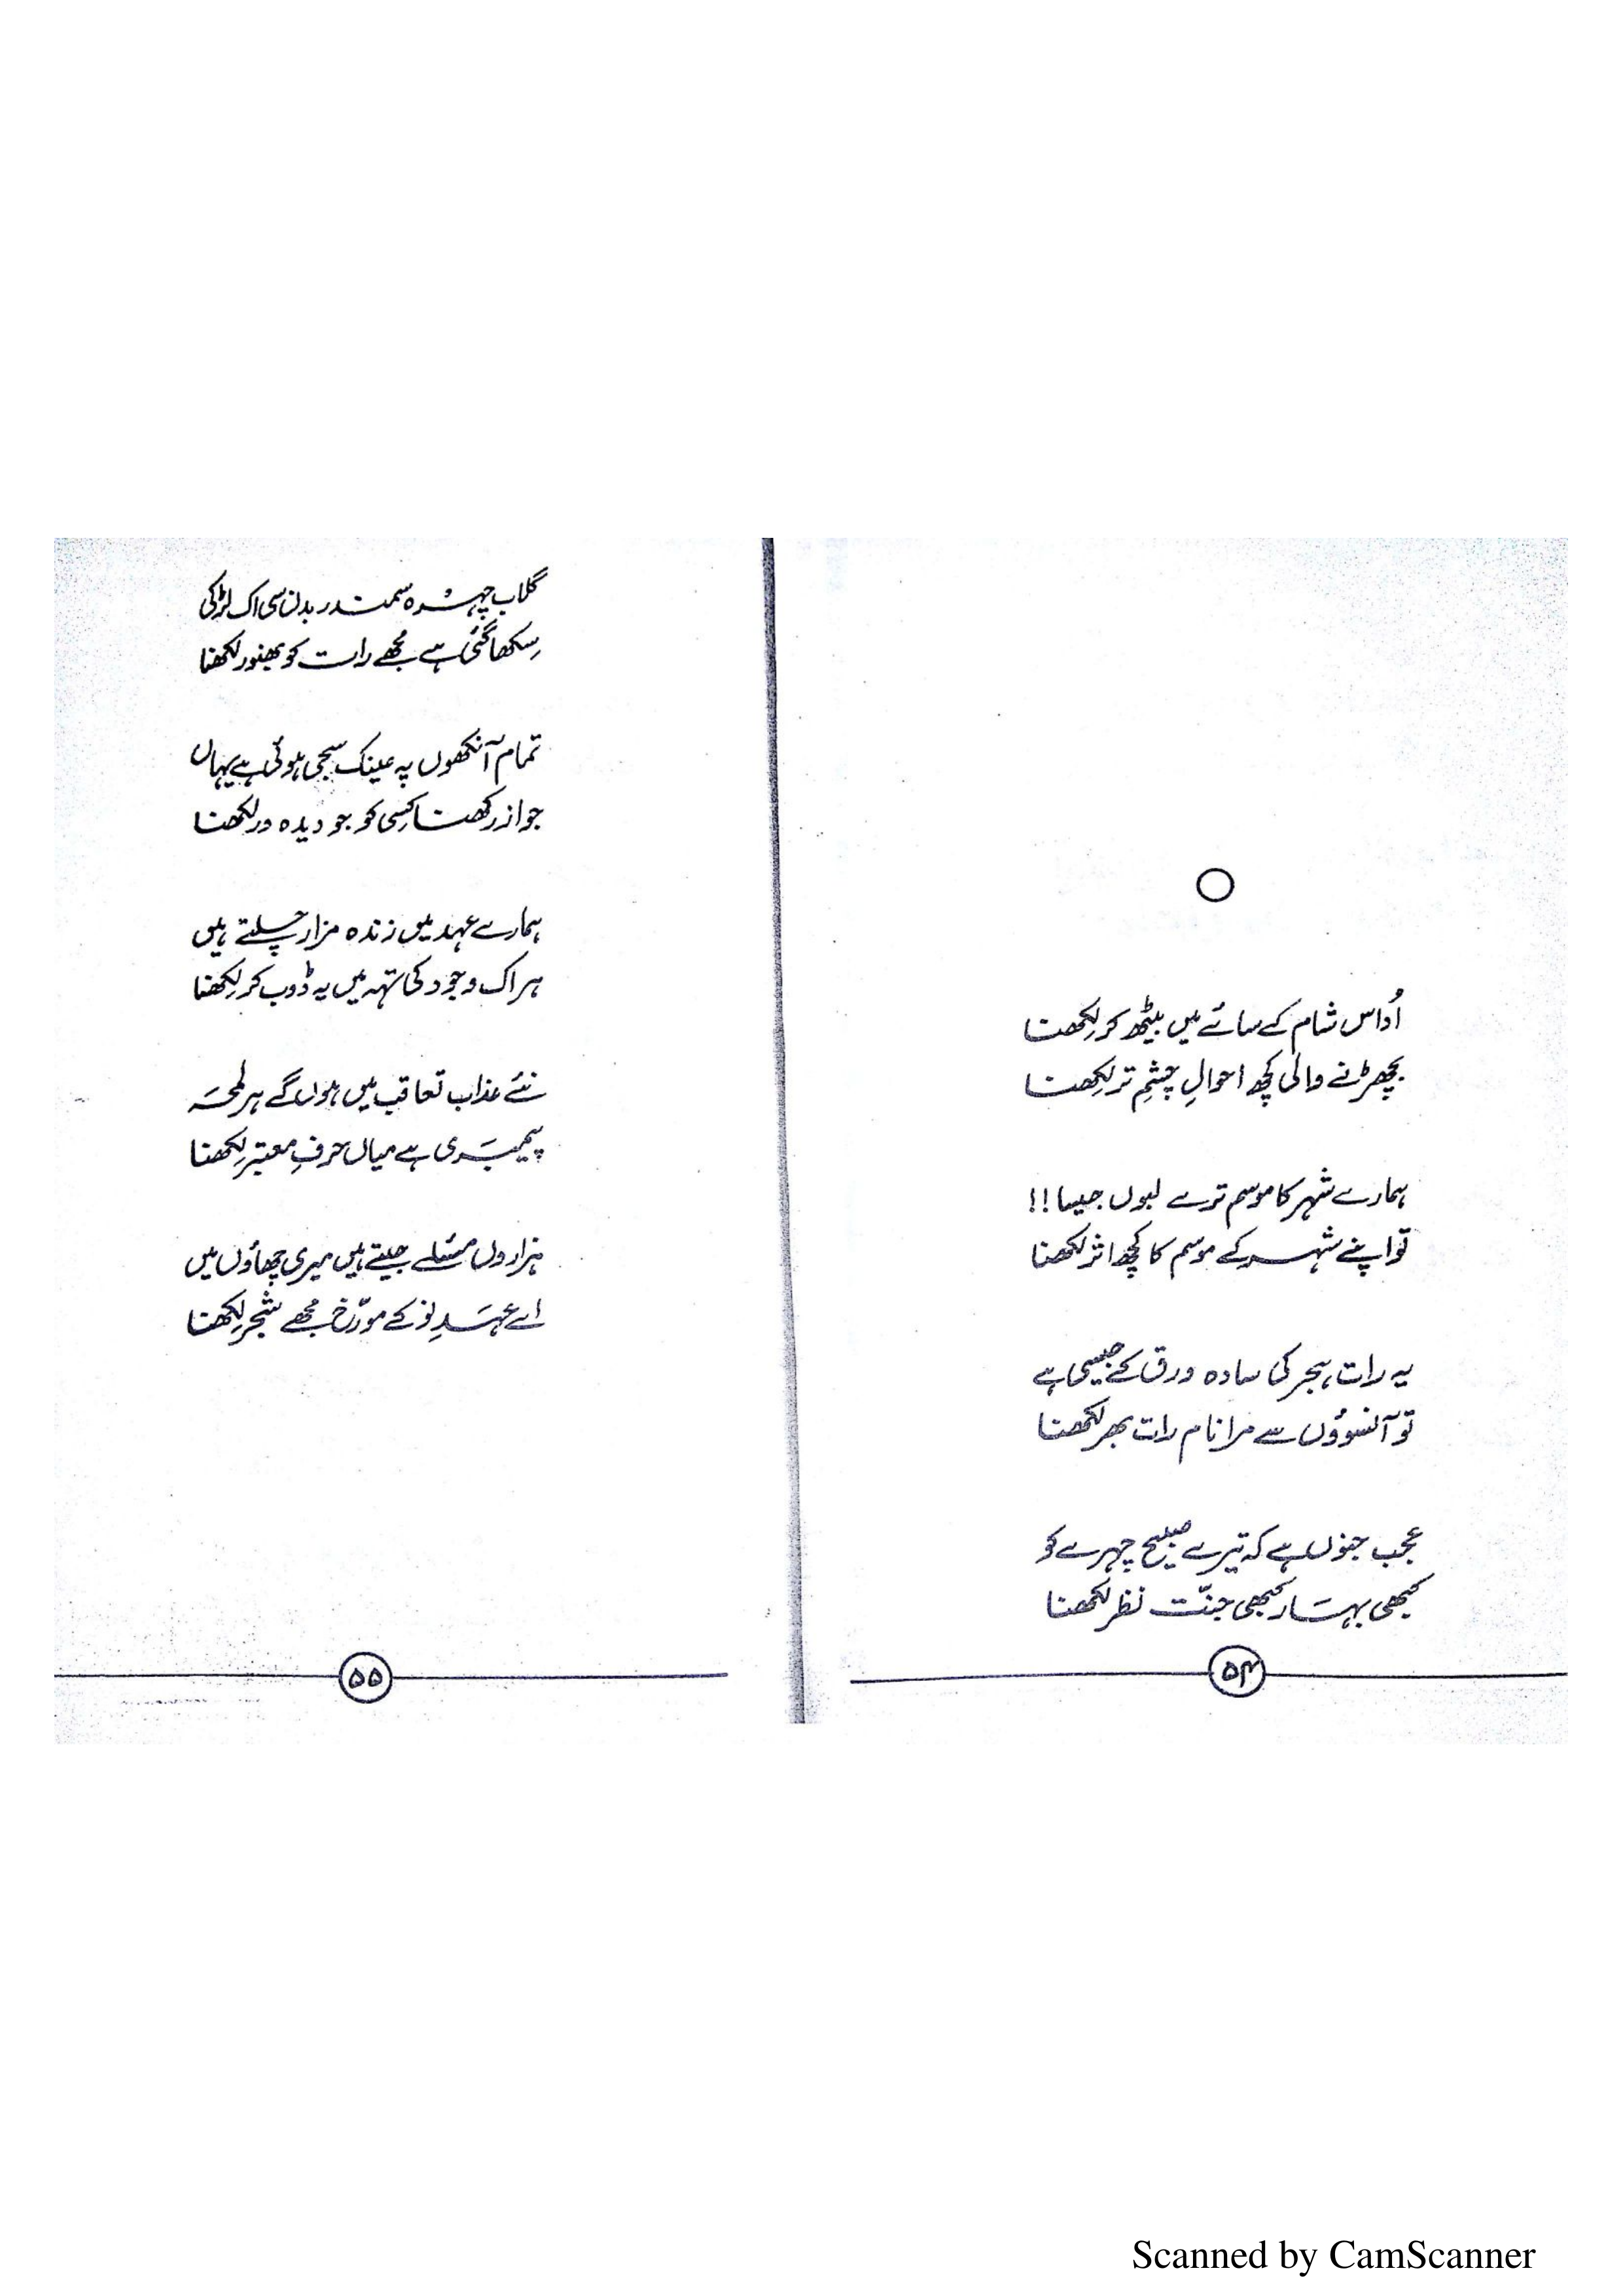 اُداس شام کے سائے میں بیٹھ کر لِکھنا
بچھڑنے والی کچھ احوالِ چشمِ تر لِکھنا
ہمارے شہر کا موسم ترے لبوں جیسا !!
تو اپنے شہر کے موسم کا کچھ اثر لکھنا
یہ رات ہجر کی سادہ ورق کے جیسی ہے
تو آنسوؤں سے مرا نام رات بھر لکھنا
عجب جنوں ہے کہ تیرے صبیح چہرے کو
کبھی بہار کبھی جنّت نظر لکھنا
۵۴
گلاب چہرہ سمندر بدن سی اک لڑکی
سِکھا گئی ہے مُجھے رات کو بھنور لکھنا
تمام آنکھوں پہ عینک سجی ہوئی ہے یہاں
جواز رکھنا کِسی کو جو دیدہ ور لکھنا
ہمارے عہد میں زندہ مزار چلتے ہیں
ہر اک وجود کی تہہ میں یہ ڈوب کر لِکھنا
نئے عذاب تعاقب میں ہوں گے ہر لمحہ
پیمبری ہے میاں حرفِ معتبر لِکھنا
ہزاروں مسئلے جیتے ہیں میری چھاؤں میں
اے عہدِ نو کے مورّخ مُجھے شجر لِکھنا
۵۵
Scanned by CamScanner